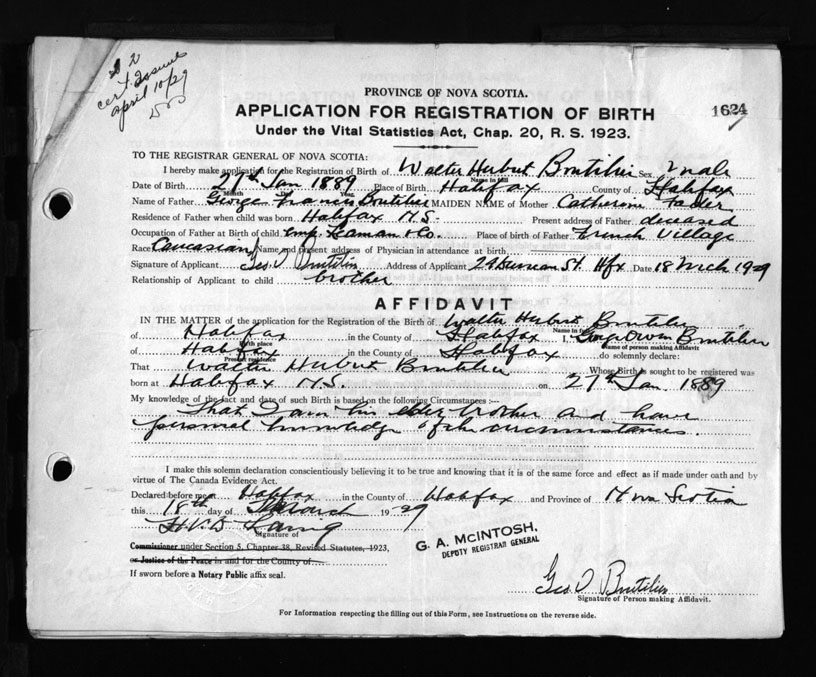 2
cert issued
april 10/29
PROVINCE OF NOVA SCOTIA.
APPLICATION FOR REGISTRATION OF BIRTH
1624
Under the Vital Statistics Act, Chap. 20, R. S. 1923.
TO THE REGISTRAR GENERAL OF NOVA SCOTIA:
I hereby make application for the Registration of Birth of Walter Herbert Boutilier Sex male
Name in full
Date of Birth 27th Jan 1889 Place of Birth Halifax County of Halifax
Month Day Year
Name of Father George Francis Boutilier MAIDEN NAME of Mother Catherine Fader
Residence of Father when child was born Halifax N.S. Present address of Father deceased
Occupation of Father at Birth of child emp. & Co. Place of birth of Father French Village
Race Caucasian Name and present address of Physician in attendance at birth
Signature of Applicant Geo. O Boutilier Address of Applicant 24 Duncan St. Hfx Date 18 Mch 1929
Relationship of Applicant to child brother
AFFIDAVIT
IN THE MATTER of the application for the Registration of the Birth of Walter Herbert Boutilier
Name in full
of Halifax in the County of Halifax I, George Boutilier
Birth place
Name of person making Affidavit
of Halifax in the County of Halifax do solemnly declare:
Present residence
That Walter Herbert Boutilier Whose Birth is sought to be registered was
born at Halifax N.S. on 27th Jan. 1889
My knowledge of the fact and date of such Birth is based on the following Circumstances :—
That I am his elder brother and have
personal knowledge of the circumstances.
I make this solemn declaration conscientiously believing it to be true and knowing that it is of the same force and effect as if made under oath and by
virtue of The Canada Evidence Act.
Declared before me a Halifax in the County of Halifax and Province of Nova Scotia
this 18th day of March 1929
Laing
Signature of
G. A. McINTOSH,
DEPUTY REGISTRAR GENERAL
Commissioner under Section 5, Chapter 38, Revised Statutes, 1923,
or Justice of the Peace in and for the County of
If sworn before a Notary Public affix seal.
Geo O Boutilier
Signature of Person making Affidavit.
For Information respecting the filling out of this Form, see Instructions on the reverse side.